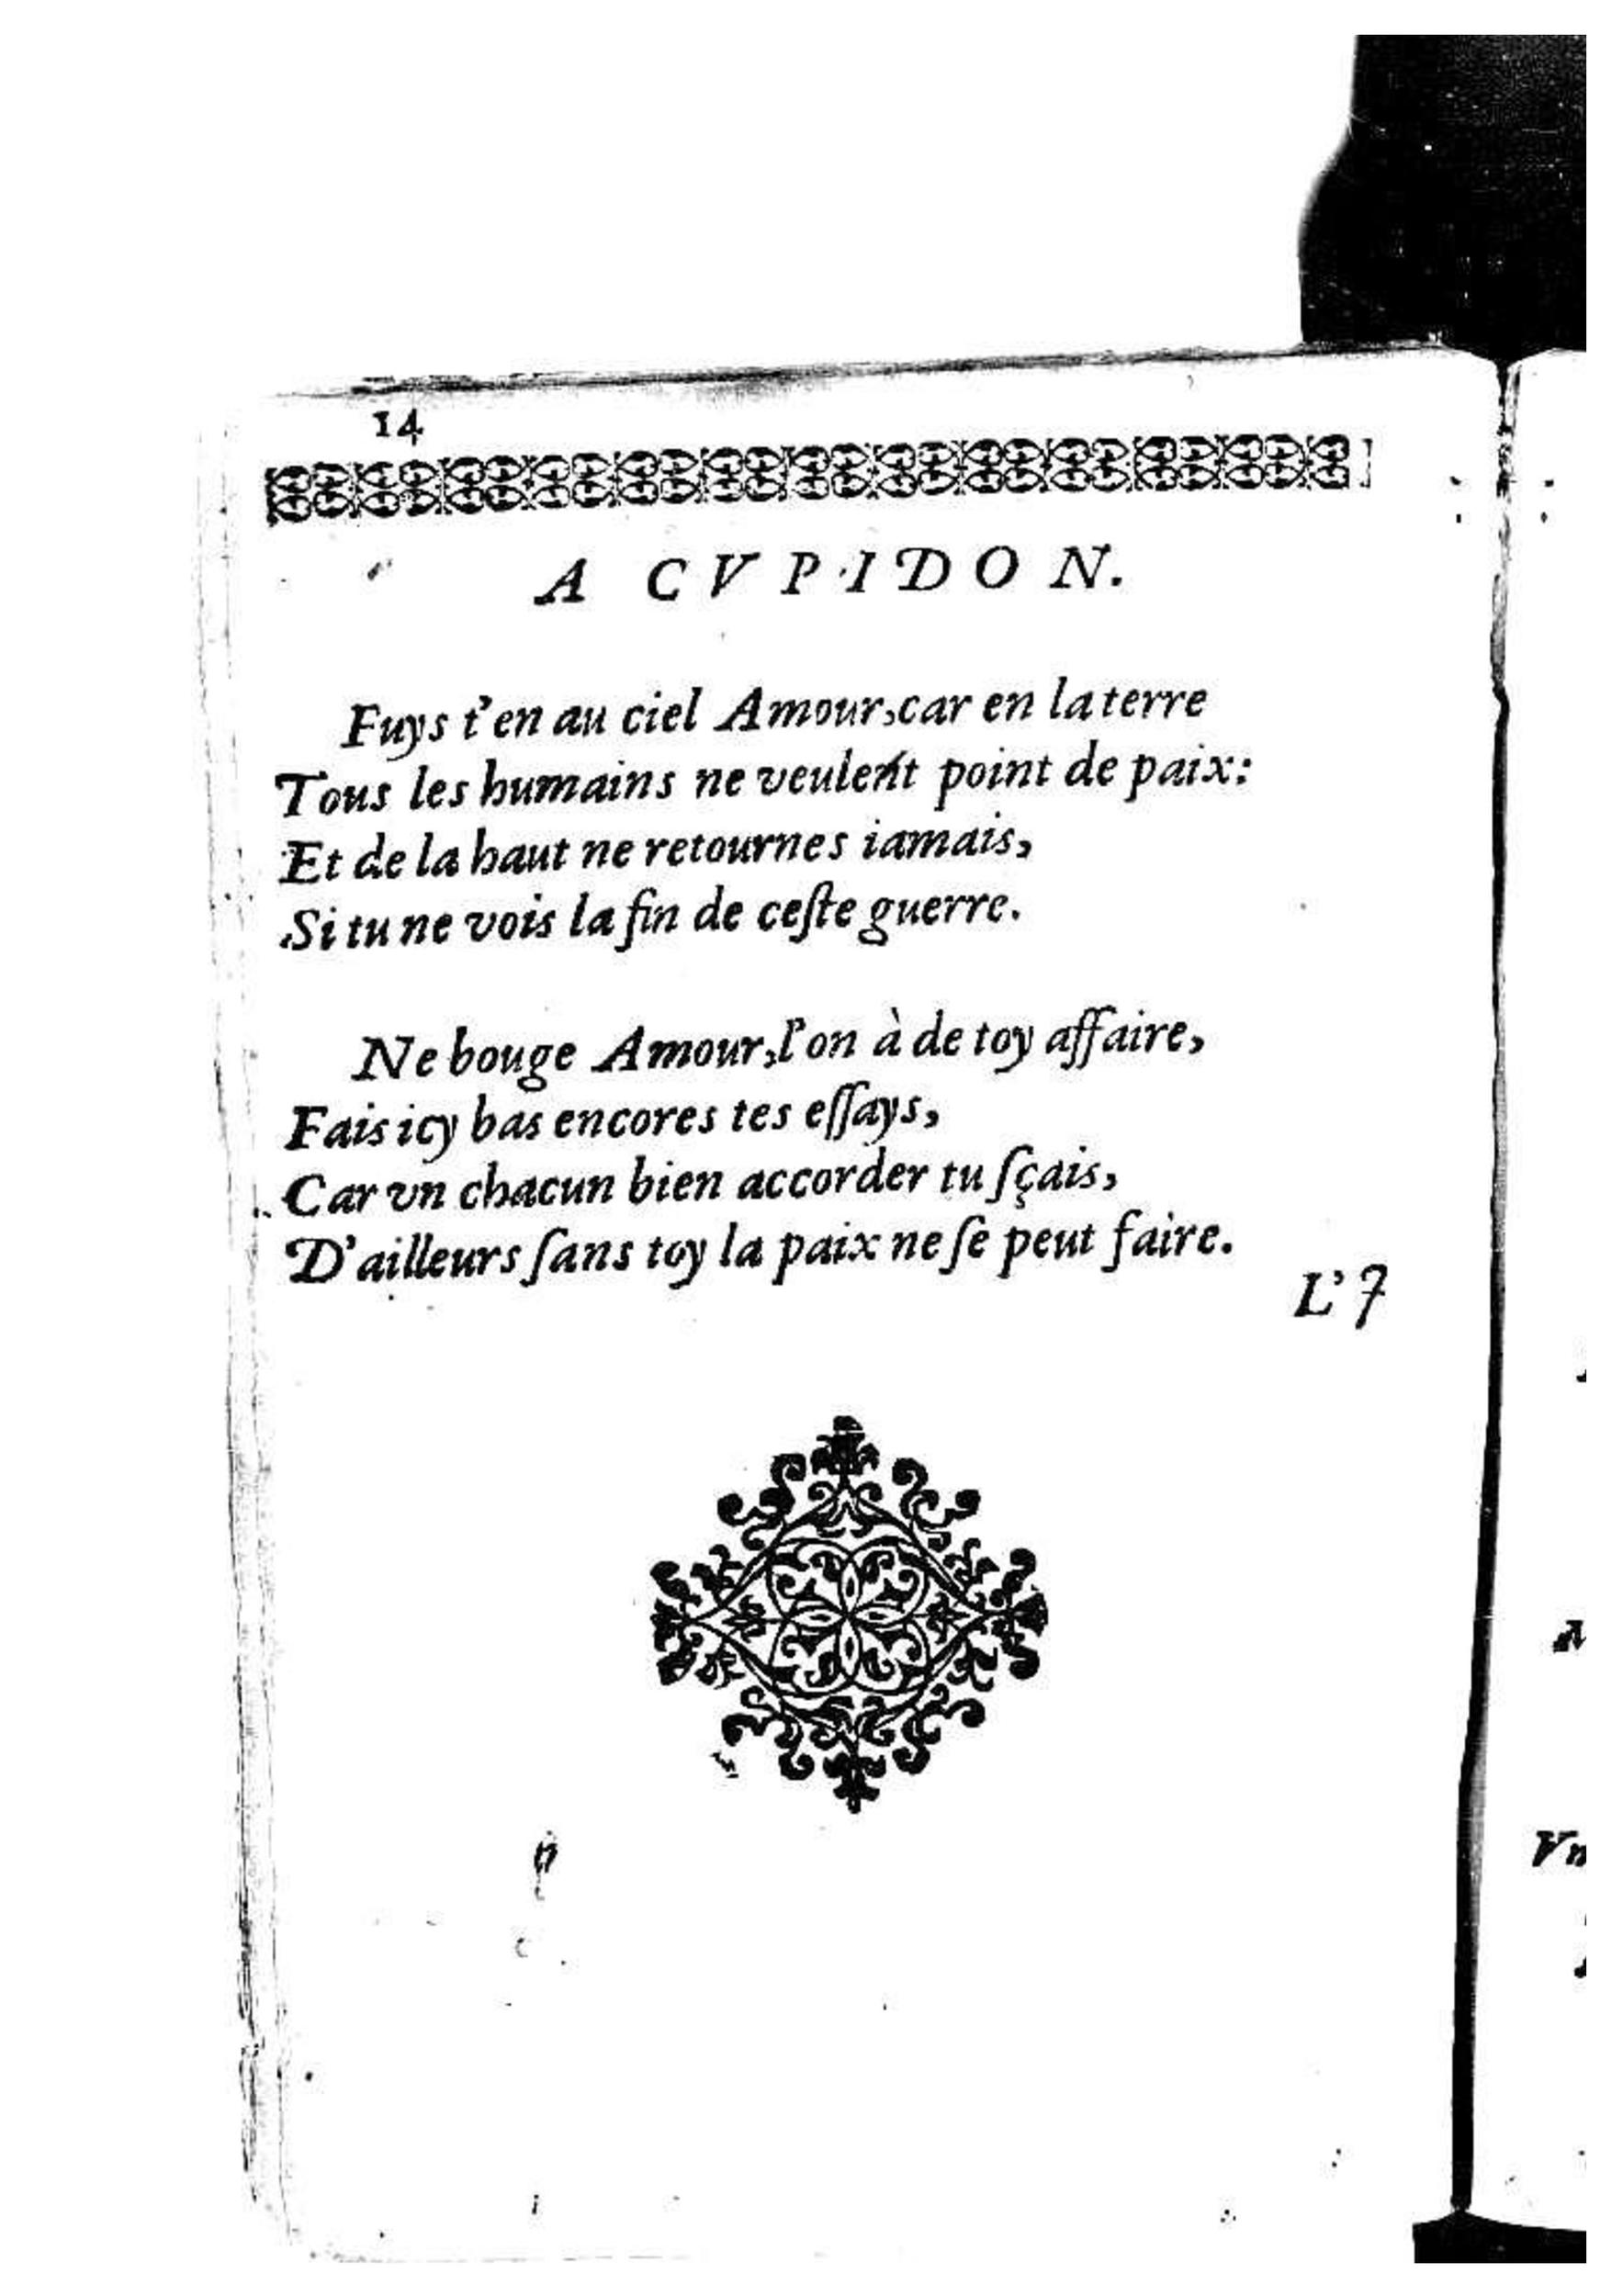 14
A CVPIDON.
Fuys t'en au ciel Amour, car en la terre
Tous les humains ne veulent point de paix:
Et de la haut ne retournes iamais,
Si tu ne vois la fin de ceſte guerre.
Ne bouge Amour, l'on à de toy affaire,
Fais icy bas encores tes eſſays,
Car vn chacun bien accorder tu ſçais,
D'ailleurs ſans toy la paix ne ſe peut faire.
L'